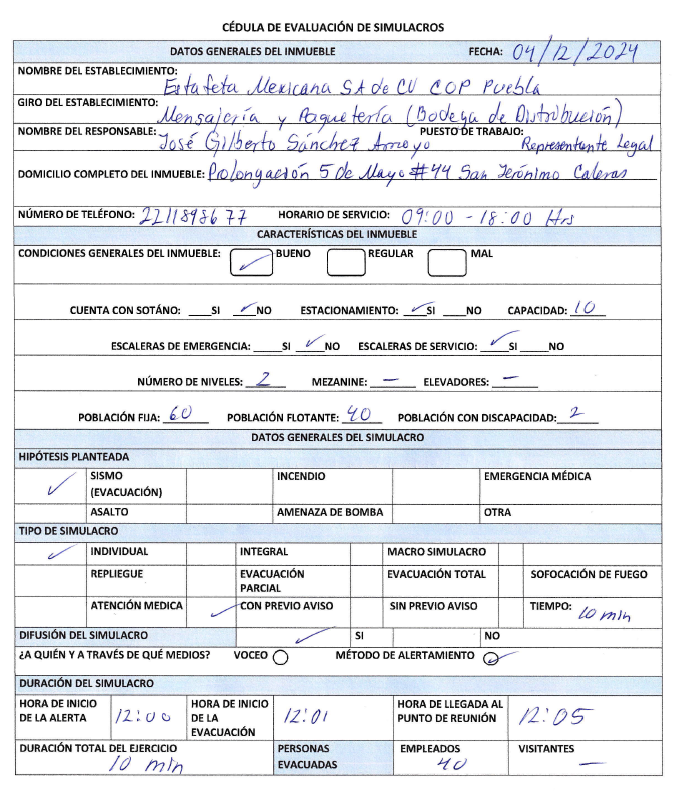 CÉDULA DE EVALUACIÓN DE SIMULACROS
DATOS GENERALES DEL INMUEBLE FECHA: 04/12/2024
NOMBRE DEL ESTABLECIMIENTO: Estafeta Mexicana SA de CV COP Puebla
GIRO DEL ESTABLECIMIENTO: Mensajería y Paquetería (Bodega de Distribución)
NOMBRE DEL RESPONSABLE: José Gilberto Sánchez Arroyo PUESTO DE TRABAJO: Representante Legal
DOMICILIO COMPLETO DEL INMUEBLE: Prolongación 5 de Mayo #44 San Jerónimo Caleras
NÚMERO DE TELÉFONO: 2211898677 HORARIO DE SERVICIO: 09:00 - 18:00 Hrs
CARACTERÍSTICAS DEL INMUEBLE
CONDICIONES GENERALES DEL INMUEBLE: ✓ BUENO REGULAR MAL
CUENTA CON SOTÁNO: ____SI ✓NO ESTACIONAMIENTO: ✓SI ____NO CAPACIDAD: 10
ESCALERAS DE EMERGENCIA: ____SI ✓NO ESCALERAS DE SERVICIO: ✓SI ____NO
NÚMERO DE NIVELES: 2 MEZANINE: — ELEVADORES: —
POBLACIÓN FIJA: 60 POBLACIÓN FLOTANTE: 40 POBLACIÓN CON DISCAPACIDAD: 2
DATOS GENERALES DEL SIMULACRO
HIPÓTESIS PLANTEADA
✓ SISMO (EVACUACIÓN) INCENDIO EMERGENCIA MÉDICA
ASALTO AMENAZA DE BOMBA OTRA
TIPO DE SIMULACRO
✓ INDIVIDUAL INTEGRAL MACRO SIMULACRO
REPLIEGUE EVACUACIÓN PARCIAL EVACUACIÓN TOTAL SOFOCACIÓN DE FUEGO
ATENCIÓN MEDICA ✓ CON PREVIO AVISO SIN PREVIO AVISO TIEMPO: 10 min
DIFUSIÓN DEL SIMULACRO ✓ SI NO
¿A QUIÉN Y A TRAVÉS DE QUÉ MEDIOS? VOCEO MÉTODO DE ALERTAMIENTO ✓
DURACIÓN DEL SIMULACRO
HORA DE INICIO DE LA ALERTA 12:00 HORA DE INICIO DE LA EVACUACIÓN 12:01 HORA DE LLEGADA AL PUNTO DE REUNIÓN 12:05
DURACIÓN TOTAL DEL EJERCICIO 10 min PERSONAS EVACUADAS EMPLEADOS 40 VISITANTES —